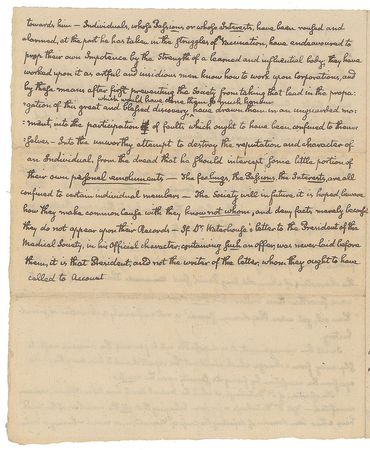 towards him — Individuals, whose Passions or whose Interests, have been roused and
alarmed, at the part he has taken in the struggles of Vaccination, have endeavoured to
prop their own Impotence by the Strength of a learned and influential body. They have
worked upon it as artful and insidious men know how to work upon Corporations, and
by these means after first preventing the Society from taking that lead in the propa-
which would have done them so much honour
-gation of this great and blessed discovery, have drawn them in an unguarded mo-
-ment, into the participation of faults which ought to have been confined to them-
-selves — Into the unworthy attempt to destroy the reputation and character of
an Individual, from the dread that he should intercept some little portion of
their own personal emoluments — The feelings, the Passions, the Interests, are all
confined to certain individual members — The Society will in future, it is hoped beware
how they make common cause with they know not whom, and deny facts merely because
they do not appear upon their Records — If Dr. Waterhouse's letter to the President of the
Medical Society, in his Official character, containing such an offer, was never laid before
them, it is that President, and not the writer of the letter, whom they ought to have
called to Account